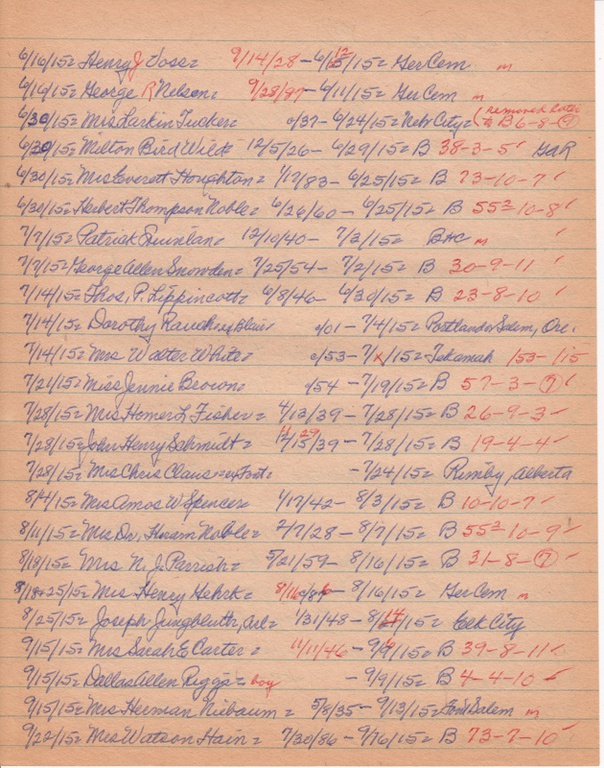 6/16/15= Henry J Voss= 9/14/28 - 6/12/15= Ger Cem m
6/16/15= George R Nelson= 9/28/87 - 6/11/15= Ger Cem m
6/30/15= Mrs Larkin Tucker= c/37 - 6/24/15= Nebr City= (removed later to B 6-8-(7)
6/30/15= Milton Bird Wild= 12/5/26 - 6/29/15= B 38-3-5 ✓ GAR
6/30/15= Mrs Everett Houghton= 1/17/83 - 6/25/15= B 73-10-7 ✓
6/30/15= Herbert Thompson Noble= 6/26/60 - 6/25/15= B 55²-10-8 ✓
7/7/15= Patrick Quinlan= 12/10/40 - 7/3/15= BHC m ✓
7/7/15= George Allen Snowden= 7/25/54 - 7/2/15= B 30-9-11 ✓
7/14/15= Thos. P. Lippincott= 6/8/46 - 6/30/15= B 23-8-10 ✓
7/14/15= Dorothy Rauch= ex Blair c/01 - 7/4/15= Portland or Salem, Ore.
7/14/15= Mrs Walter White= c/53 - 7/x/15= Tekamah /53 - /15
7/21/15= Miss Jennie Brown= c/54 - 7/19/15= B 57-3-(7) ✓
7/28/15= Mrs Homer L Fisher= 4/13/39 - 7/28/15= B 26-9-3 ✓
7/28/15= John Henry Schmidt= 11/29/39 - 7/28/15= B 19-4-4 ✓
7/28/15= Mrs Chris Claus= - 7/24/15= Rimby, Alberta
8/4/15= Mrs Amos W Spencer= 1/17/42 - 8/3/15= B 10-10-7 ✓
8/11/15= Mrs Dr. Hiram Noble= 2/7/28 - 8/7/15= B 55²-10-9 ✓
8/18/15= Mrs N. J. Parrish= 5/21/59 - 8/16/15= B 31-8-(7) ✓
8/18+25/15= Mrs Henry Gehrk= 8/16/ - 8/16/15= Ger Cem m
8/25/15= Joseph Jungbluth, = 1/31/48 - 8/14/15= Elk City
9/15/15= Mrs Sarah E Carter= 11/11/46 - 9/ /15= B 39-8-11 ✓
9/15/15= Dallas Allen Riggs= boy - 9/9/15= B 4-4-10 ✓
9/15/15= Mrs Herman Niebaum= 5/8/35 - 9/13/15= Salem m
9/22/15= Mrs Watson Hain= 7/30/86 - 9/16/15= B 73-7-10 ✓